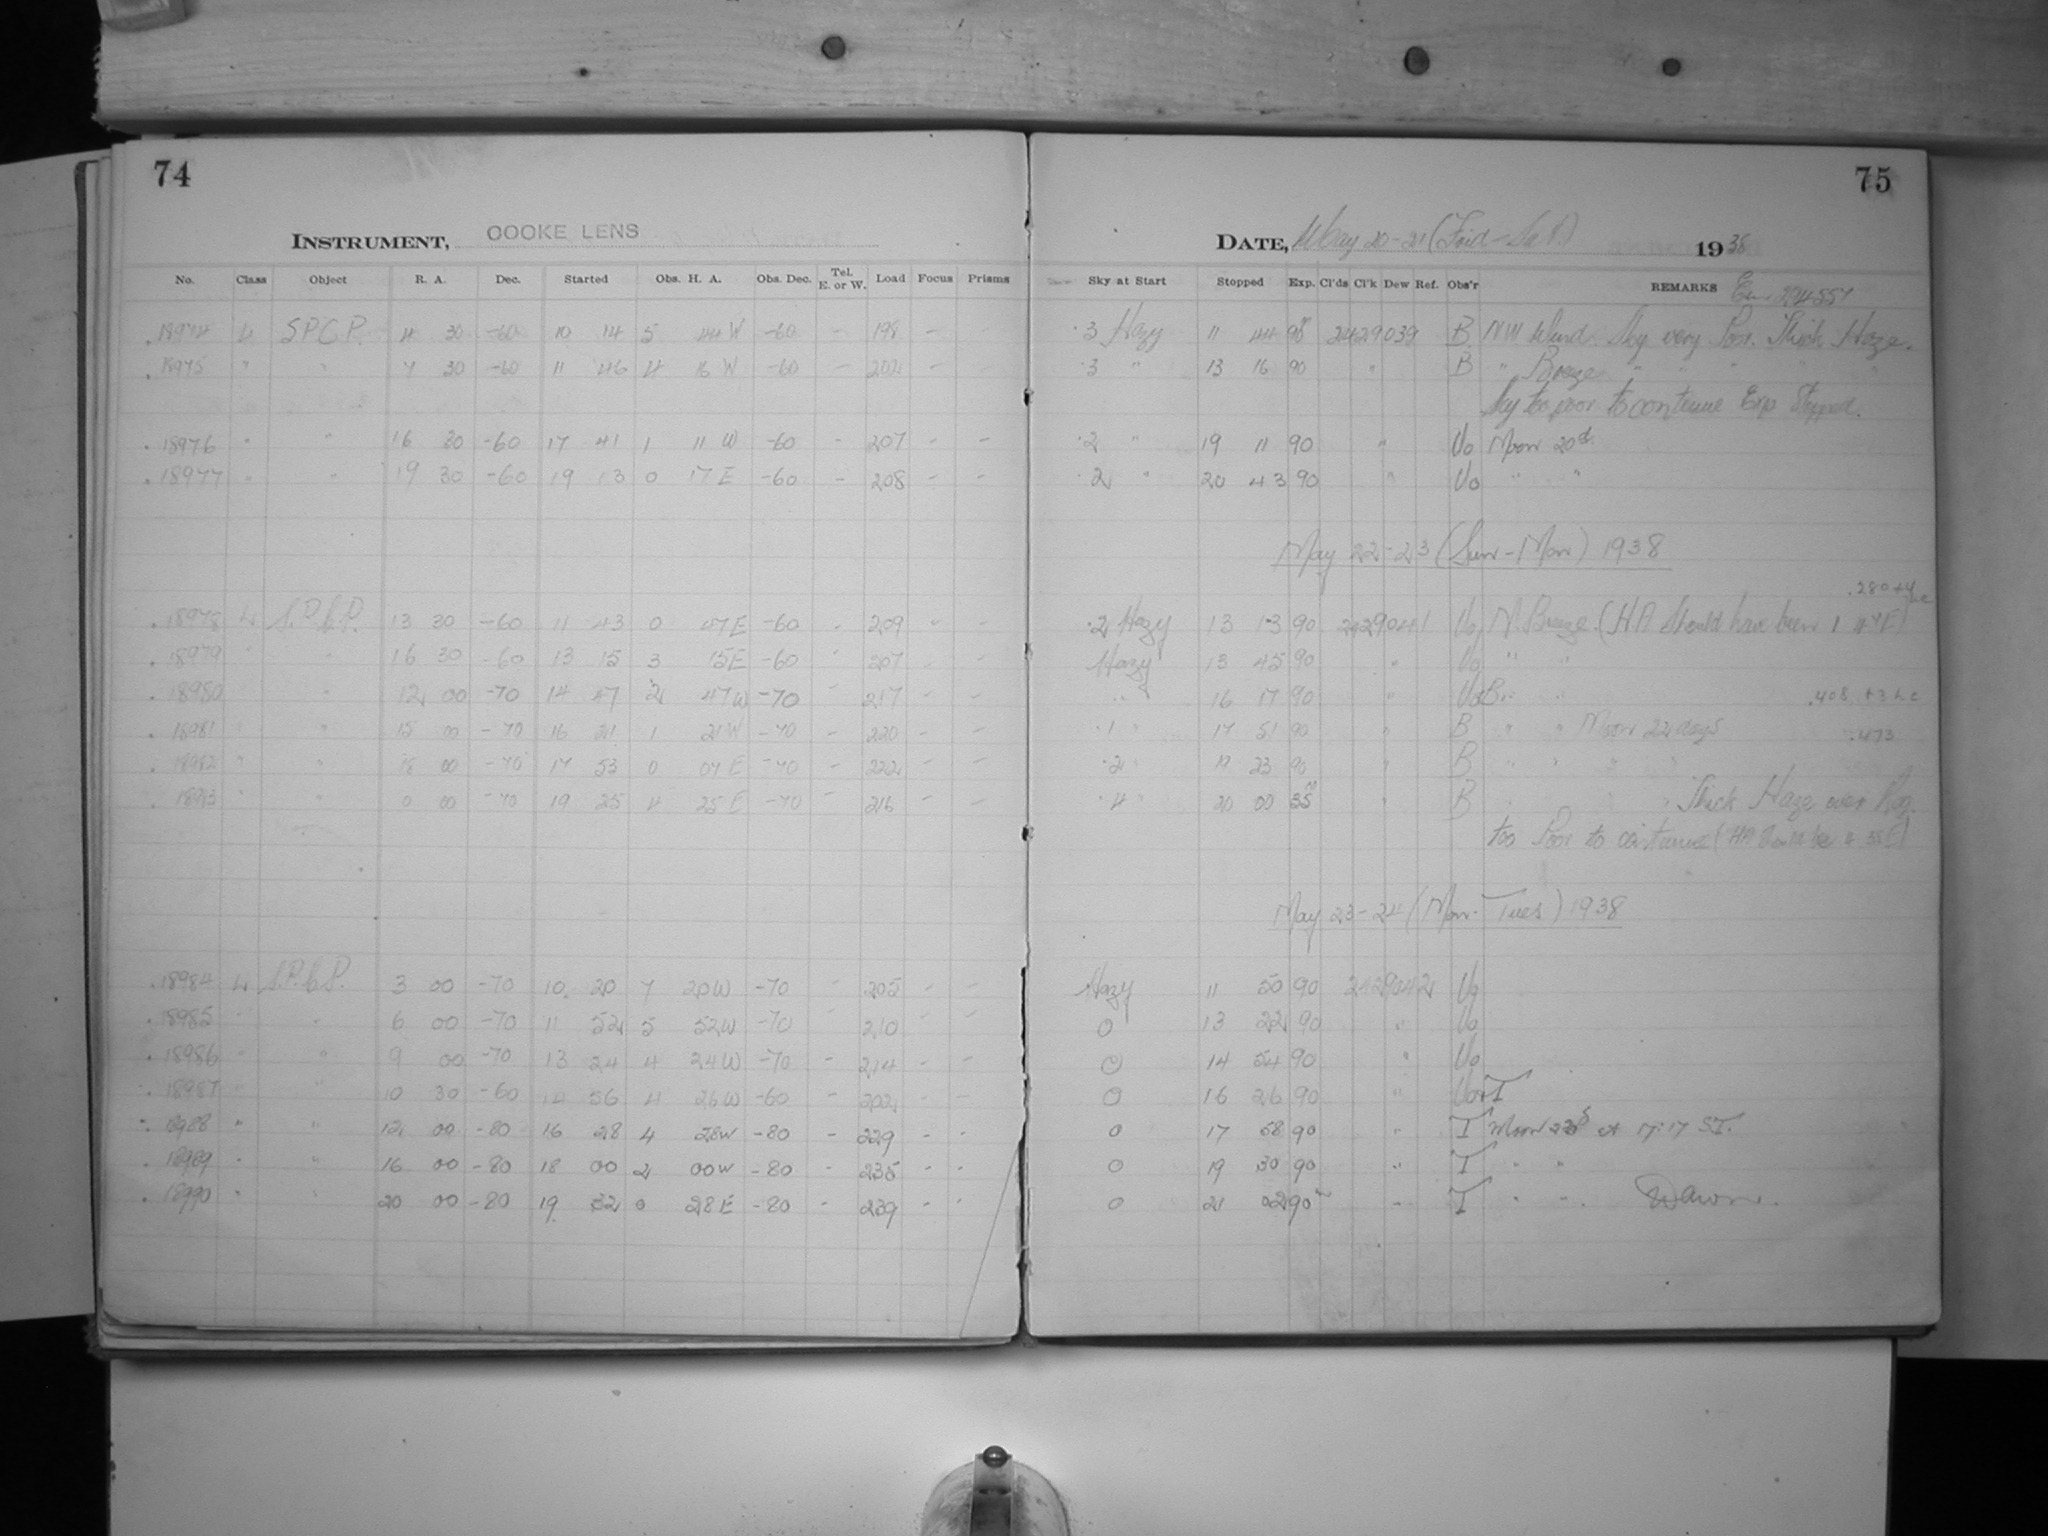 74
75
INSTRUMENT, COOKE LENS
DATE, May 20-21 (Frid-Sat) 1938
No. Class Object R. A. Dec. Started Obs. H. A. Obs. Dec. Tel. E. or W. Load Focus Prisms Sky at Start Stopped Exp. Cl'ds Cl'k Dew Ref. Obs'r REMARKS
18974 L S.P.C.P. 4 30 -60 10 14 5 44 W -60 - 198 - - 3 Hazy 11 44 90 2429039 B NW Wind. Sky very Poor. Thick Haze.
18975 " " 7 30 -60 11 46 4 16 W -60 - 202 - - 3 " 13 16 90 " B " Breeze " " " " "
Sky too poor to continue Exp Stopped.
18976 " " 16 30 -60 17 41 1 11 W -60 - 207 - - 2 " 19 11 90 " Vo Moon 20d.
18977 " " 19 30 -60 19 13 0 17 E -60 - 208 - - 2 " 20 43 90 " Vo " "
May 22-23 (Sun-Mon) 1938
18978 L S.P.C.P. 13 30 -60 11 43 0 47 E -60 - 209 - - 2 Hazy 13 13 90 2429041 Vo N Breeze. (HA Should have been 1 47 E)
18979 " " 16 30 -60 13 15 3 15 E -60 - 207 - - Hazy 13 45 90 " Vo " "
18980 " 12 00 -70 14 47 2 47 W -70 - 217 - - " 16 17 90 " VoB " " .408 +3 hc
18981 " " 15 00 -70 16 21 1 21 W -70 - 220 - - 1 " 17 51 90 " B " " Moon 22 days .473
18982 " " 18 00 -70 17 53 0 07 E -70 - 222 - - 2 " 19 23 90 " B " " "
18983 " " 0 00 -70 19 25 4 25 E -70 - 216 - - 4 " 20 00 35 " B Thick Haze over Reg.
too Poor to continue (HA Should be 4 35 E)
May 23-24 (Mon-Tues) 1938
18984 L S.P.C.P. 3 00 -70 10 20 7 20 W -70 - 205 - - Hazy 11 50 90 2429042 Vo
18985 " " 6 00 -70 11 52 5 52 W -70 - 210 - - 0 13 22 90 " Vo
18986 " " 9 00 -70 13 24 4 24 W -70 - 214 - - 0 14 54 90 " Vo
18987 " " 10 30 -60 14 56 4 26 W -60 - 202 - - 0 16 26 90 Vo+I
18988 " " 12 00 -80 16 28 4 28 W -80 - 229 - - 0 17 58 90 " I Moon 23d at 17:17 S.T.
18989 " " 16 00 -80 18 00 2 00 W -80 - 235 - - 0 19 30 90 " I " "
18990 " " 20 00 -80 19 32 0 28 E -80 - 239 - - 0 21 02 90 - I " " . Dawn.